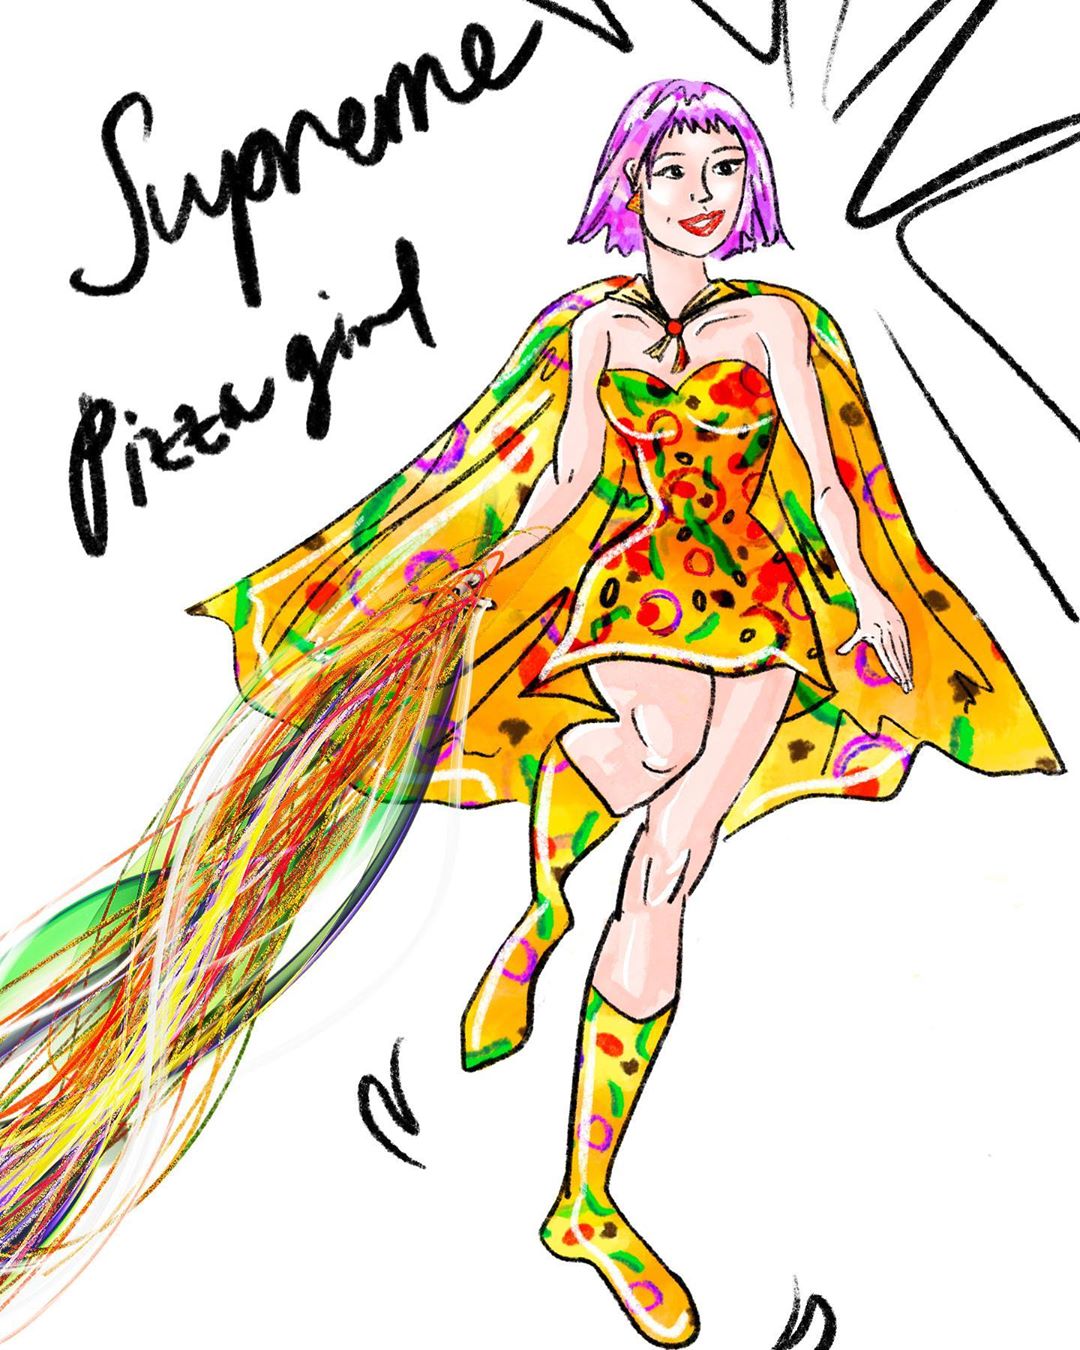 Supreme
Pizza girl